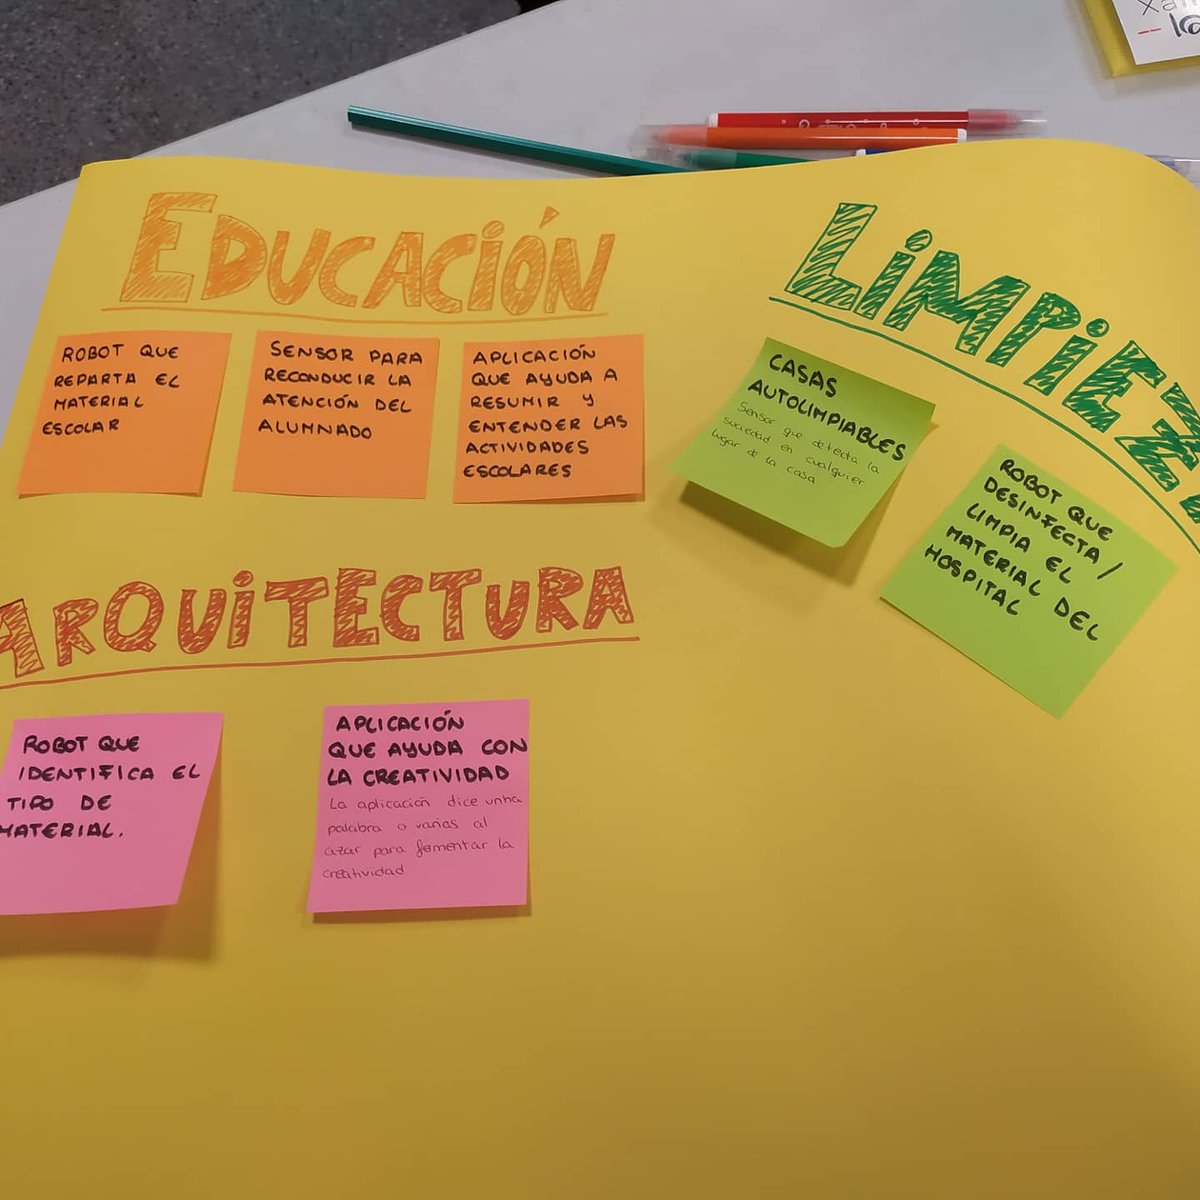 EDUCACIÓN
ROBOT QUE
REPARTA EL
MATERIAL
ESCOLAR
SENSOR PARA
RECONDUCIR LA
ATENCIÓN DEL
ALUMNADO
APLICACIÓN
QUE AYUDA A
RESUMIR Y
ENTENDER LAS
ACTIVIDADES
ESCOLARES
LIMPIEZ
CASAS
AUTOLIMPIABLES
Sensor que detecta la
suciedad en cualquier
lugar de la casa
ROBOT QUE
DESINFECTA/
LIMPIA EL
MATERIAL DEL
HOSPITAL
ARQUITECTURA
ROBOT QUE
IDENTIFICA EL
TIPO DE
MATERIAL.
APLICACIÓN
QUE AYUDA CON
LA CREATIVIDAD
La aplicación dice unha
palabra o varias al
azar para fomentar la
creatividad